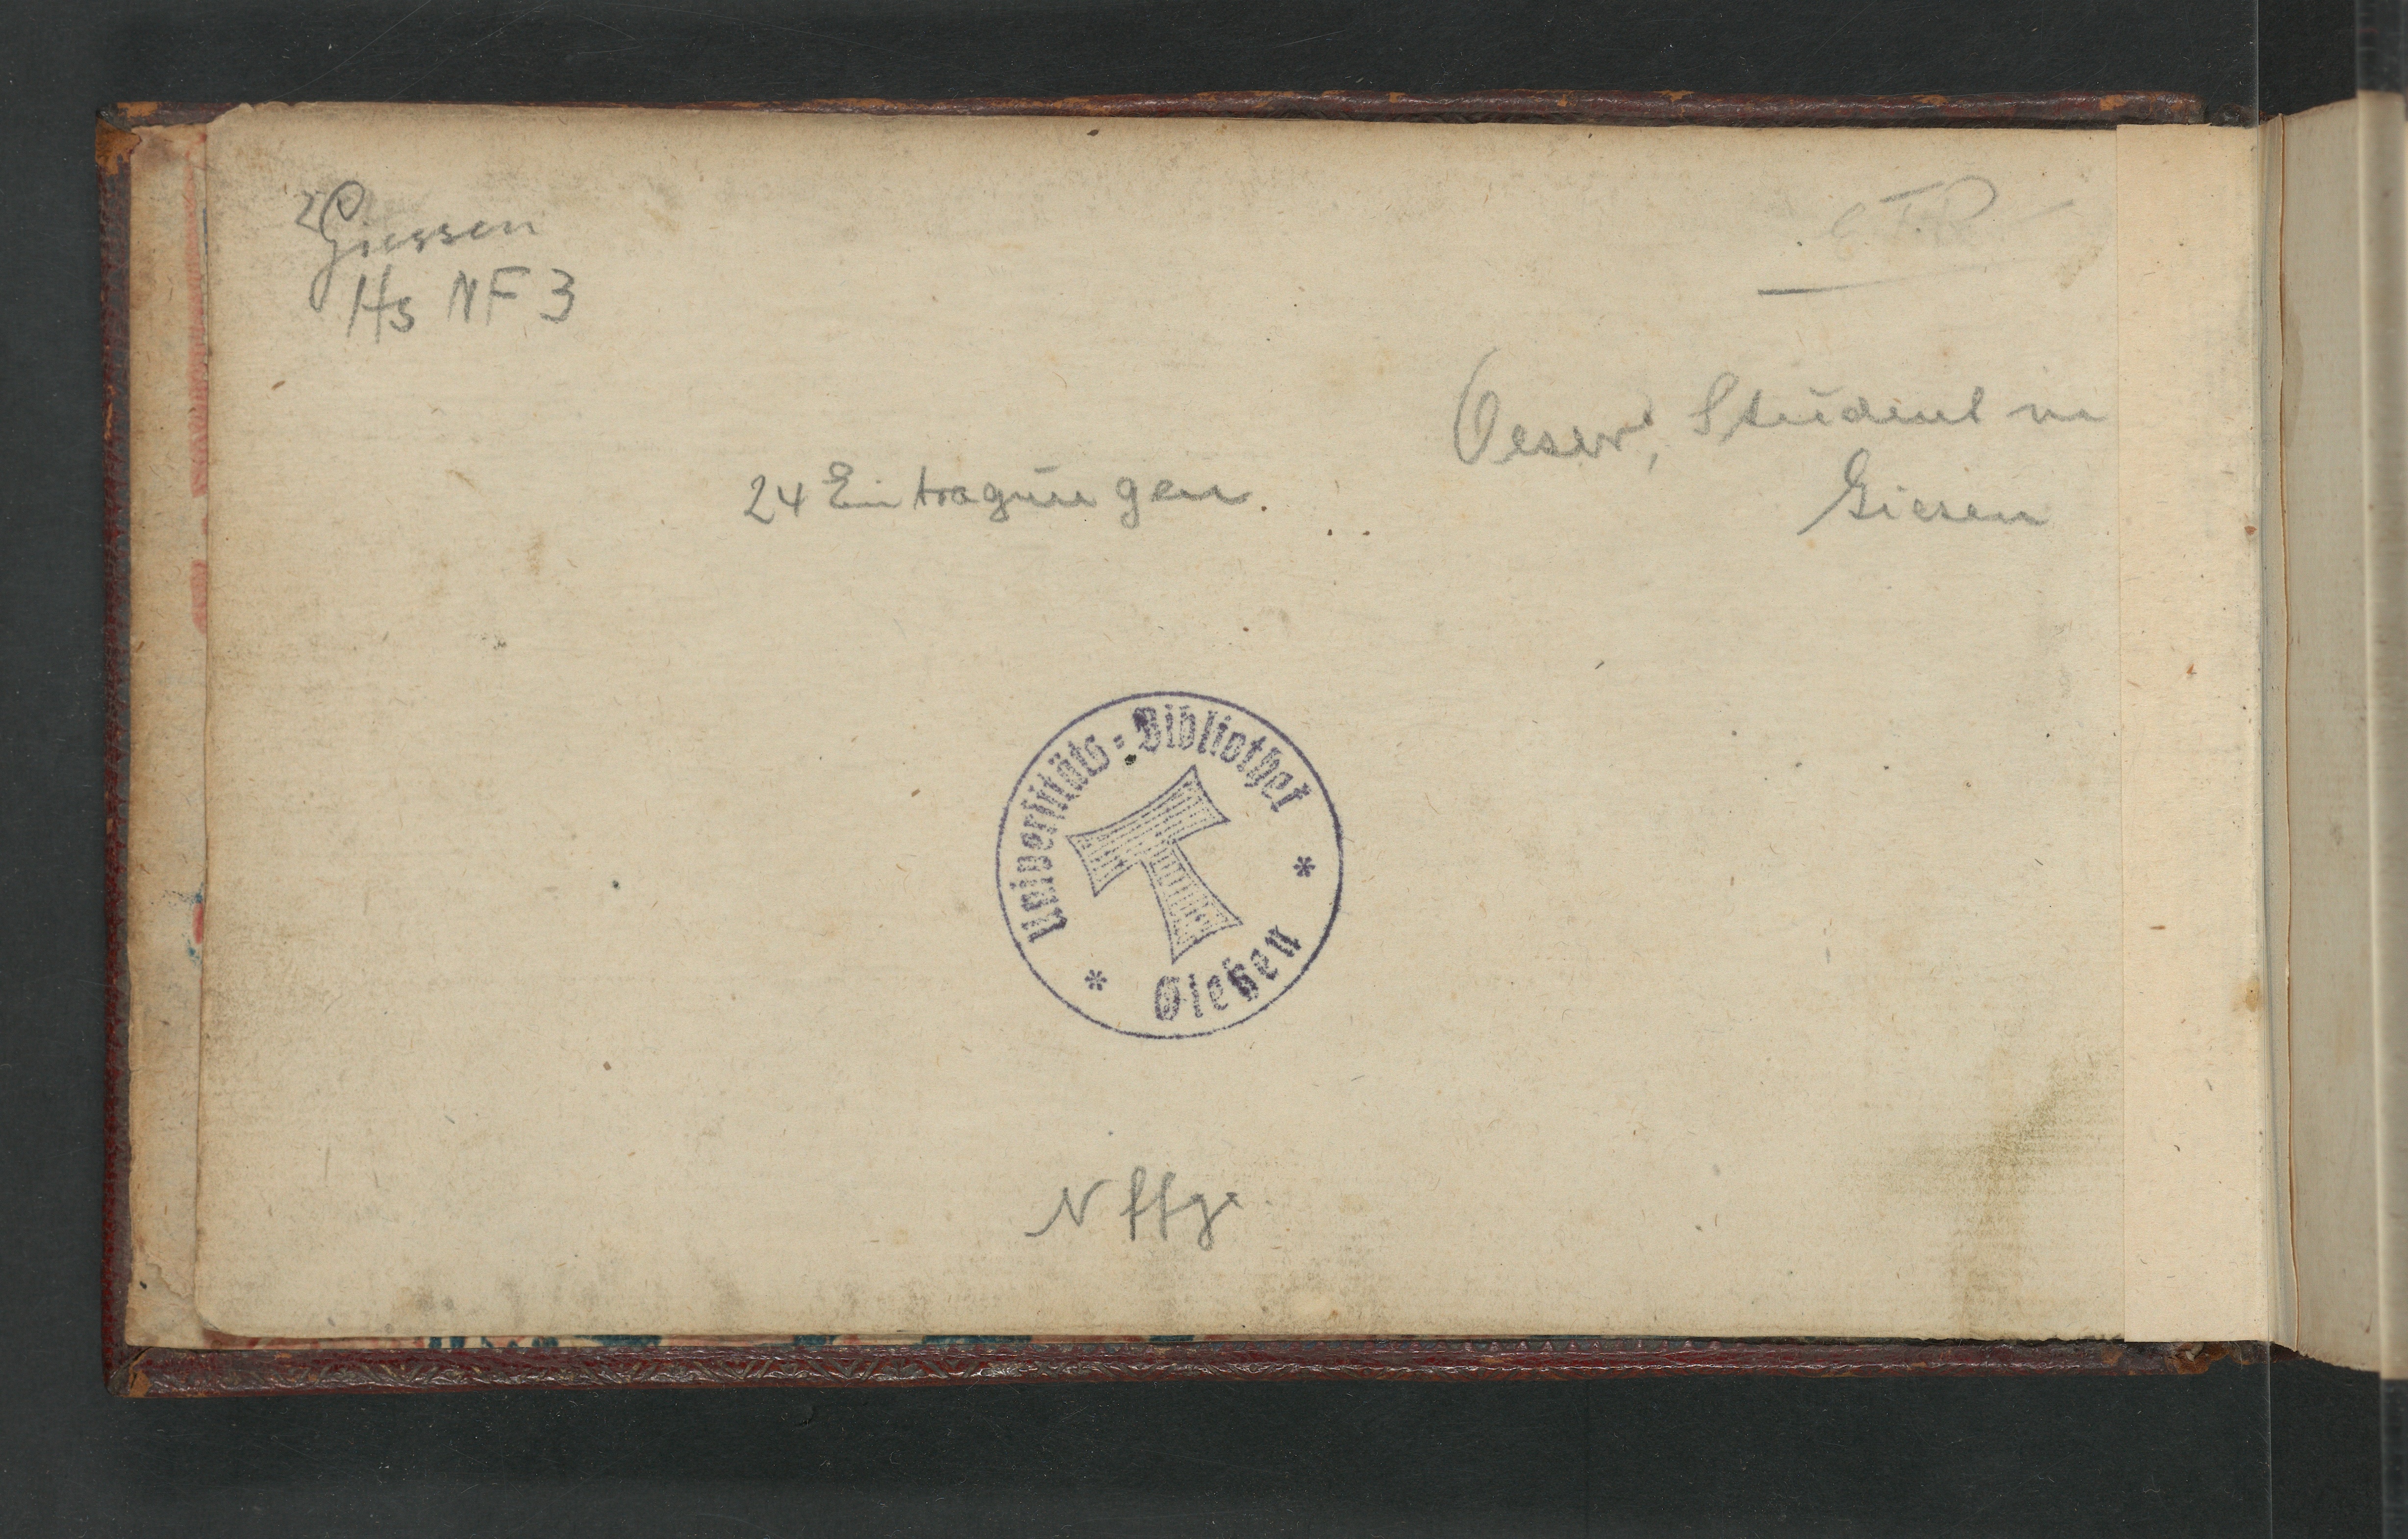 Giessen
Hs NF 3
Oeser, Student in
Giesen
24 Eintragungen.
Universitäts-Bibliothek
Gießen